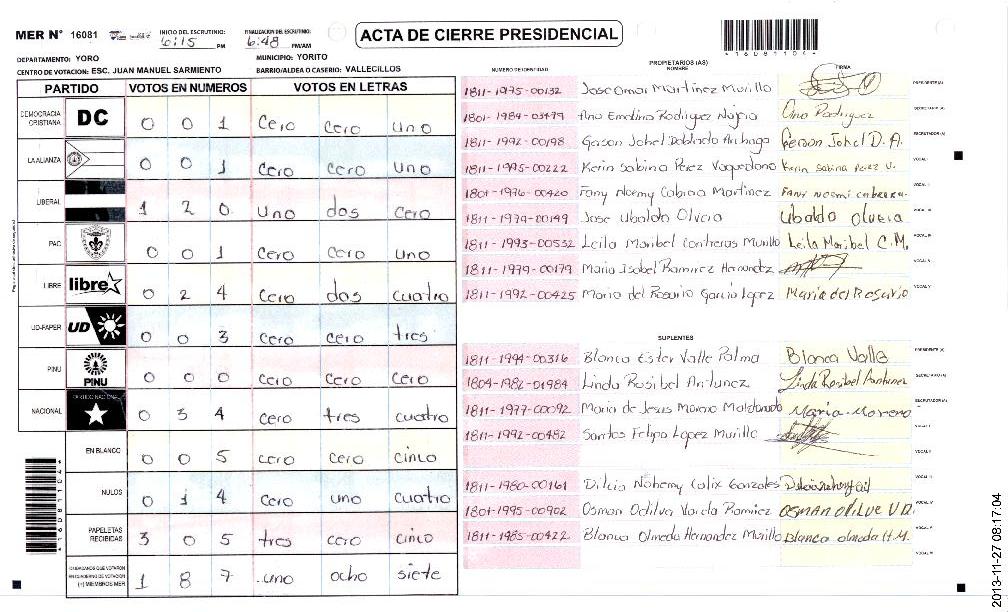 MER N° 16081 INICIO DEL ESCRUTINIO: 6:15 PM FINALIZACION DEL ESCRUTINIO: 6:48 PM/AM
ACTA DE CIERRE PRESIDENCIAL
41608110​44
DEPARTAMENTO: YORO MUNICIPIO: YORITO
CENTRO DE VOTACION: ESC. JUAN MANUEL SARMIENTO BARRIO/ALDEA O CASERIO: VALLECILLOS
PARTIDO VOTOS EN NUMEROS VOTOS EN LETRAS
DEMOCRACIA CRISTIANA DC 0 0 1 cero cero uno
LA ALIANZA 0 0 1 cero cero uno
LIBERAL 1 2 0 uno dos cero
PAC 0 0 1 cero cero uno
LIBRE libre 0 2 4 cero dos cuatro
UD-FAPER UD 0 0 3 cero cero tres
PINU PINU 0 0 0 cero cero cero
NACIONAL PARTIDO NACIONAL 0 3 4 cero tres cuatro
EN BLANCO 0 0 5 cero cero cinco
NULOS 0 1 4 cero uno cuatro
PAPELETAS RECIBIDAS 3 0 5 tres cero cinco
CIUDADANOS QUE VOTARON EN CUADERNO DE VOTACION (+) MIEMBROS MER 1 8 7 uno ocho siete
PROPIETARIOS (AS)
NUMERO DE IDENTIDAD NOMBRE FIRMA
1811-1975-00132 Jose Omar Martinez Murillo PRESIDENTE (A)
1801-1984-03479 Ana Emelina Rodriguez Najera Ana Rodriguez SECRETARIO (A)
1811-1992-00198 Gerson Johel Doblado Arteaga Gerson Johel D. A. ESCRUTADOR (A)
1811-1995-00222 Kerin Sabina Perez Vaquedano Kerin Sabina Perez V. VOCAL I
1801-1976-00420 Fany Noemy Cabrera Martinez Fany Noemi Cabrera. VOCAL II
1811-1979-00149 Jose Ubaldo Olvera Ubaldo Olvera VOCAL III
1811-1993-00532 Leila Maribel Contreras Murillo Leila Maribel C.M. VOCAL IV
1811-1979-00179 Maria Isabel Ramirez Hernandez VOCAL V
1811-1992-00425 Maria del Rosario Garcia Lopez Maria del Rosario VOCAL VI
SUPLENTES
1811-1994-00316 Blanca Ester Valle Palma Blanca Valle PRESIDENTE (A)
1804-1982-01984 Linda Rosibel Antunez Linda Rosibel Antunez SECRETARIO (A)
1811-1977-00092 Maria de Jesus Moreno Maldonado Maria Moreno ESCRUTADOR (A)
1811-1992-00482 Santos Felipe Lopez Murillo VOCAL I
VOCAL II
1811-1980-00161 Dilcia Nohemy Calix Gonzales VOCAL III
1801-1995-00902 Osman Odilve Varela Ramirez VOCAL IV
1811-1985-00422 Blanca Olmeda Hernandez Murillo Blanca olmeda H.M. VOCAL V
VOCAL VI
2013-11-27 08:17:04